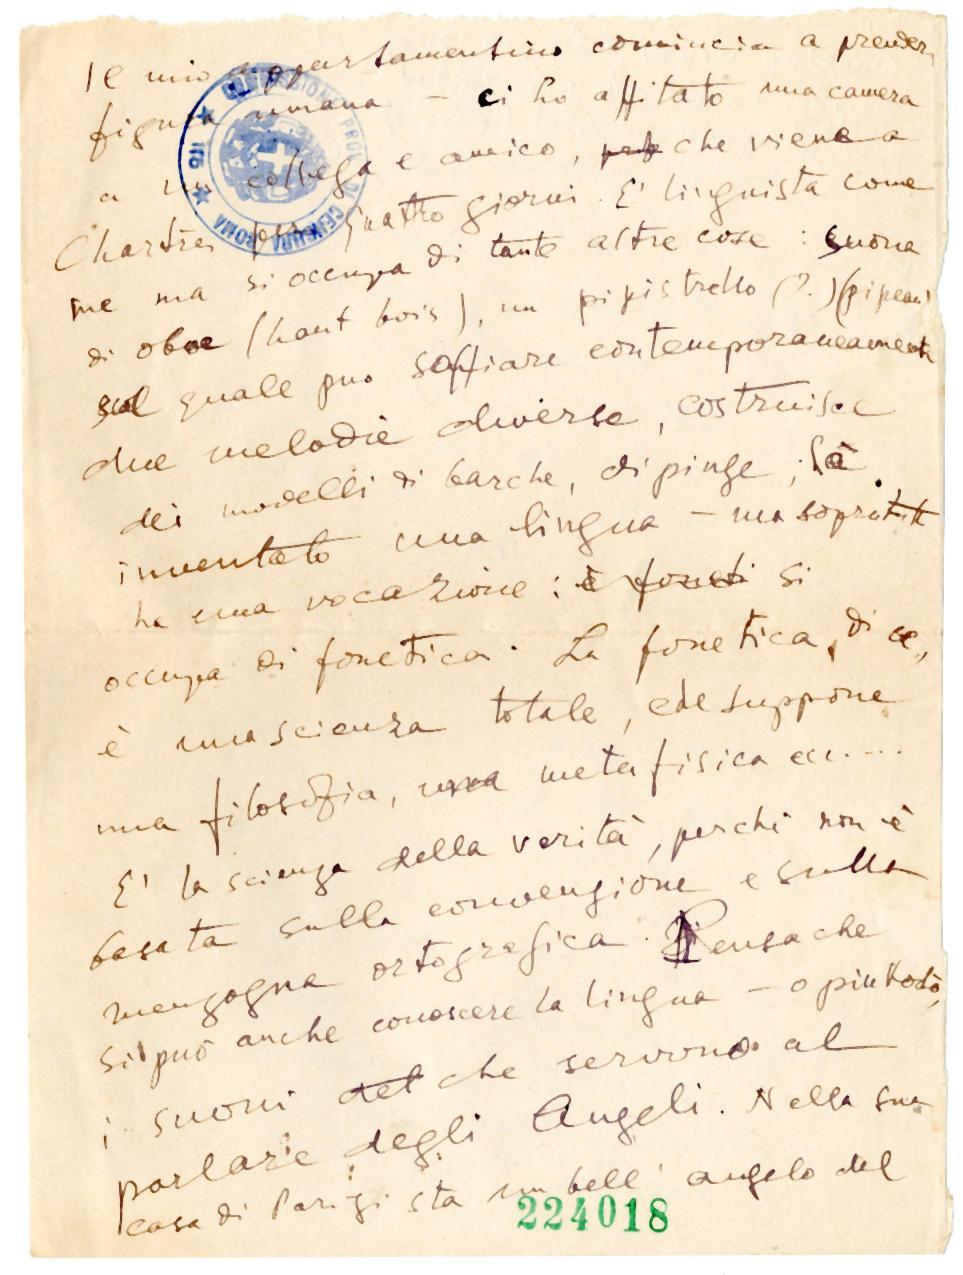 Il mio appartamentino comincia a prender
figura umana – ci ho affitato una camera
a un collega e amico, che viene a
Chartres quattro giorni. E' linguista come
me ma si occupa di tante altre cose : suona
di oboe (haut bois), un pipistrello (?.)
sul quale può soffiare contemporaneamente
due melodie diverse, costruisce
dei modelli di barche, dipinge, ha
inventato una lingua – ma sopratutt
ha una vocazione : è si
occupa di fonetica. La fonetica, dice,
è una scienza totale, che suppone
una filosofia, una metafisica ecc....
E' la scienza della verità, perchi non è
basata sulla convenzione e sulla
menzogna ortografica. Pensa che
si può anche conoscere la lingua – o piuttosto,
i suoni del che servono al
parlare degli Angeli. Nella sua
casa di Parigi sta un bell' angelo del
224018
CENSURA ROMA